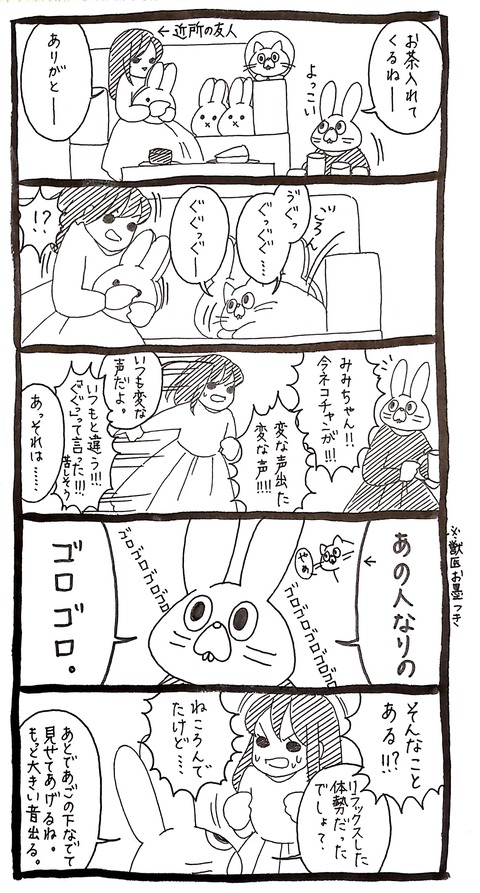 お茶入れて
くるねー
よっこい
←近所の友人
ありがとー
ごろん
ゔぐっ
ぐっぐ…
ぐぐっぐー
!?
みみちゃん!!
今ネコチャンが!!!
変な声出た
変な声!!!!
いつも変な
声だよ。
いつもと違う!!!
「ぐぐっ」って言った!!!
苦しそう
あっそれは……
※獣医お墨つき
あの人なりの
やめ
ゴロゴロゴロゴロゴロ
ゴロゴロゴロゴロ
ゴロゴロ。
そんなこと
ある!!?
リラックスした
体勢だった
でしょ?
ねころんで
たけど…
あとであごの下なでて
見せてあげるね。
もっと大きい音出る。